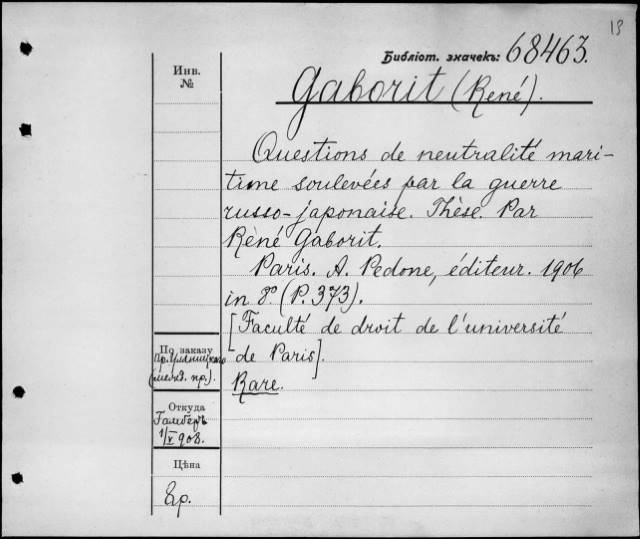 13
Библіот. значекъ: 68463.
Инв.
№
Gaborit (René).
Questions de neutralité mari-
time soulevées par la guerre
russo-japonaise. Thèse. Par
Rèné Gaborit.
Paris. A. Pedone, éditeur. 1906
in 8º. (P. 373).
[Faculté de droit de l'université
de Paris].
Rare.
По заказу
пр. Уляницкаго
(межд. пр.).
Откуда
Гамберъ
1/V 908.
Цѣна